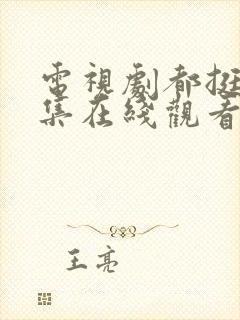 電視劇都挺
集在綫觀看
王亮